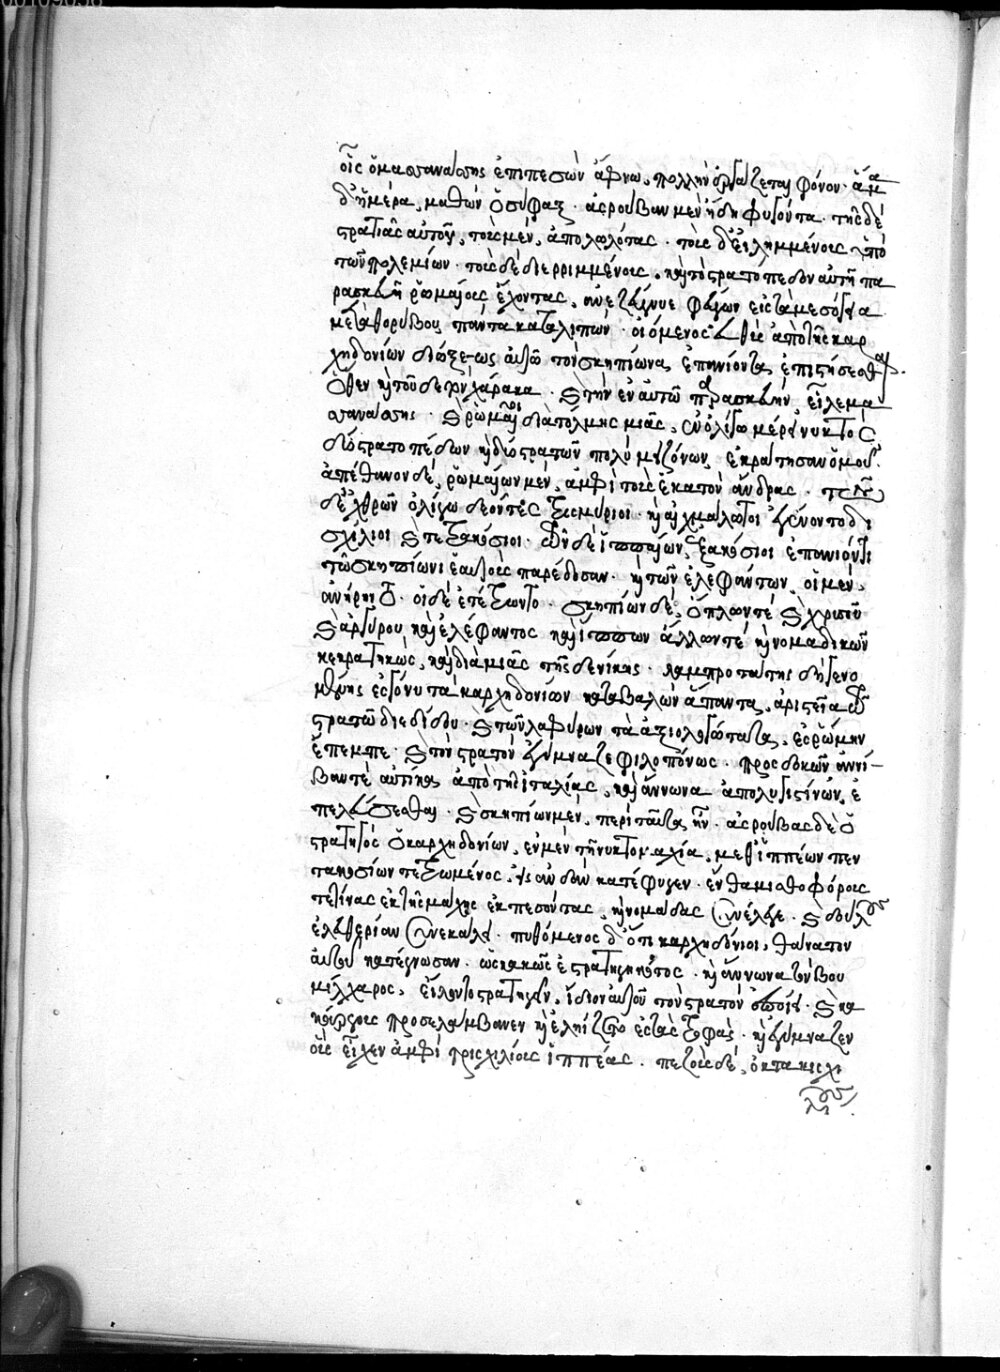 οἷς ὁ μασσανάσσης ἐπιπεσὼν ἄφνω, πολλὴν ἐργάζεται φόνον· ἅμα
δ' ἡμέρα, μαθὼν ὁ σύφαξ· ἀσρούβαν μὲν ἤδη φυγόντα· τῆς δὲ
στρατιᾶς αὐτοῦ, τοὺς μὲν, ἀπολωλότας· τοὺς δ' εἰλημμένους ὑπὸ
τῶν πολεμίων· τοὺς δὲ διερριμμένους, καὶ τὸ στρατόπεδον αὐτῇ πα
ρασκευῇ ῥωμαίους ἔχοντας, ἀνεζεύγνυε φεύγων εἰς τὰ μεσόγεια
μετὰ θορύβου, πάντα καταλιπών· οἰόμενος εὐθὺς ἀπὸ τῆς καρ
χηδονίων διώξεως αὐτῷ τὸν σκηπίωνα ἐπανιόντα ἐπιθήσεσθαι.
ὅθεν καὶ τοῦδε τὸν χάρακα· καὶ τὴν ἐν αὐτῷ παρασκευὴν εἷλε μα
σσανάσσης· καὶ ῥωμαῖοι διὰ τόλμης μιᾶς, ἐν ὀλίγῳ μέρει νυκτὸς
δύο στρατοπέδων καὶ δύο στρατῶν πολὺ μειζόνων ἐκράτησαν ὁμοῦ.
ἀπέθανον δὲ, ῥωμαίων μὲν, ἀμφὶ τοὺς ἑκατὸν ἄνδρας· τῶν
δὲ ἐχθρῶν ὀλίγῳ δέοντες τρισμύριοι· καὶ αἰχμάλωτοι ἐγένοντο δι
σχίλιοι καὶ τετρακόσιοι· τῶν δὲ ἱππέων, ἑξακόσιοι ἐπανιόντι
τῷ σκηπίωνι ἑαυτοὺς παρέδοσαν· καὶ τῶν ἐλεφάντων οἱ μὲν,
ἀνῄρηντο· οἱ δὲ ἐτέτρωντο· σκηπίων δὲ, ὅπλων τὲ καὶ χρυσοῦ
καὶ ἀργύρου καὶ ἐλέφαντος καὶ ἵππων ἄλλων τὲ καὶ νομαδικῶν
κεκρατηκὼς, καὶ διὰ μιᾶς τῆσδε νίκης· λαμπροτάτης δὴ γενο
μένης ἐς γόνυ τὰ καρχηδονίων καταβαλὼν ἅπαντα, ἀριστεῖα τῷ
στρατῷ διεδίδου· καὶ τῶν λαφύρων τὰ ἀξιολογώτατα, ἐς ῥώμην
ἔπεμπε· καὶ τὸν στρατὸν ἐγύμναζε φιλοπόνως· προσδοκῶν ἀννί-
βαν τὲ αὐτίκα ἀπὸ τῆς ἰταλίας, καὶ ἄννωνα ἀπὸ λυγιστίνων, ἐ
πελεύσεσθαι· καὶ σκηπίων μὲν, περὶ ταῦτα ἦν· ἀσρούβας δὲ ὁ
στρατηγὸς ὁ καρχηδονίων, ἐν μὲν τῇ νυκτομαχία, μεθ' ἱππέων πεν
τακοσίων τετρωμένος, ἐς ἄνδαν κατέφυγεν· ἔνθα μισθοφόρους
τέ τινας ἐκ τῆς μάχης ἐκπεσόντας, καὶ νομάδας συνέλεγε· καὶ δούλους
ἐπ' ἐλευθερίαν συνεκάλει· πυθόμενος δ' ὅτι καρχηδόνιοι, θάνατον
αὐτοῦ κατέγνωσαν· ὡς κακῶς ἐστρατηγηκότος· καὶ ἄννωνα τὸν βου
μίλχαρος, εἵλοντο στρατηγεῖν, ἴδιον αὐτοῦ τὸν στρατὸν ἐποίει· καὶ κα
κούργους προσελάμβανεν καὶ ἐληίζετο ἐς τὰς τροφὰς· καὶ ἐγύμναζεν
οὓς εἶχεν ἀμφὶ τρισχιλίους ἱππέας· πεζοὺς δὲ, ὀκτακισχι
λίους.